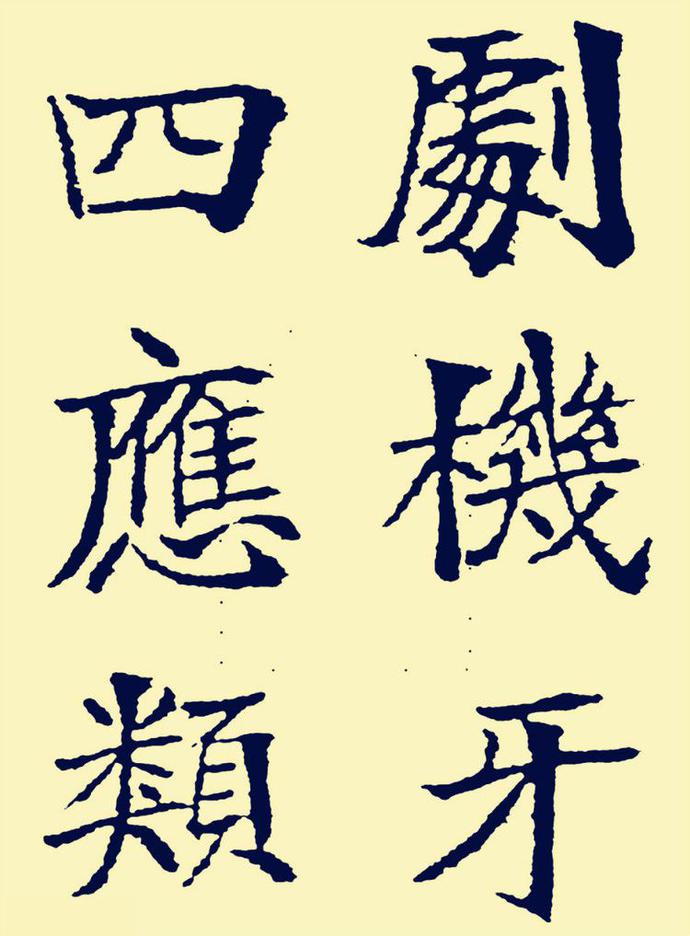 劇機牙
四應類